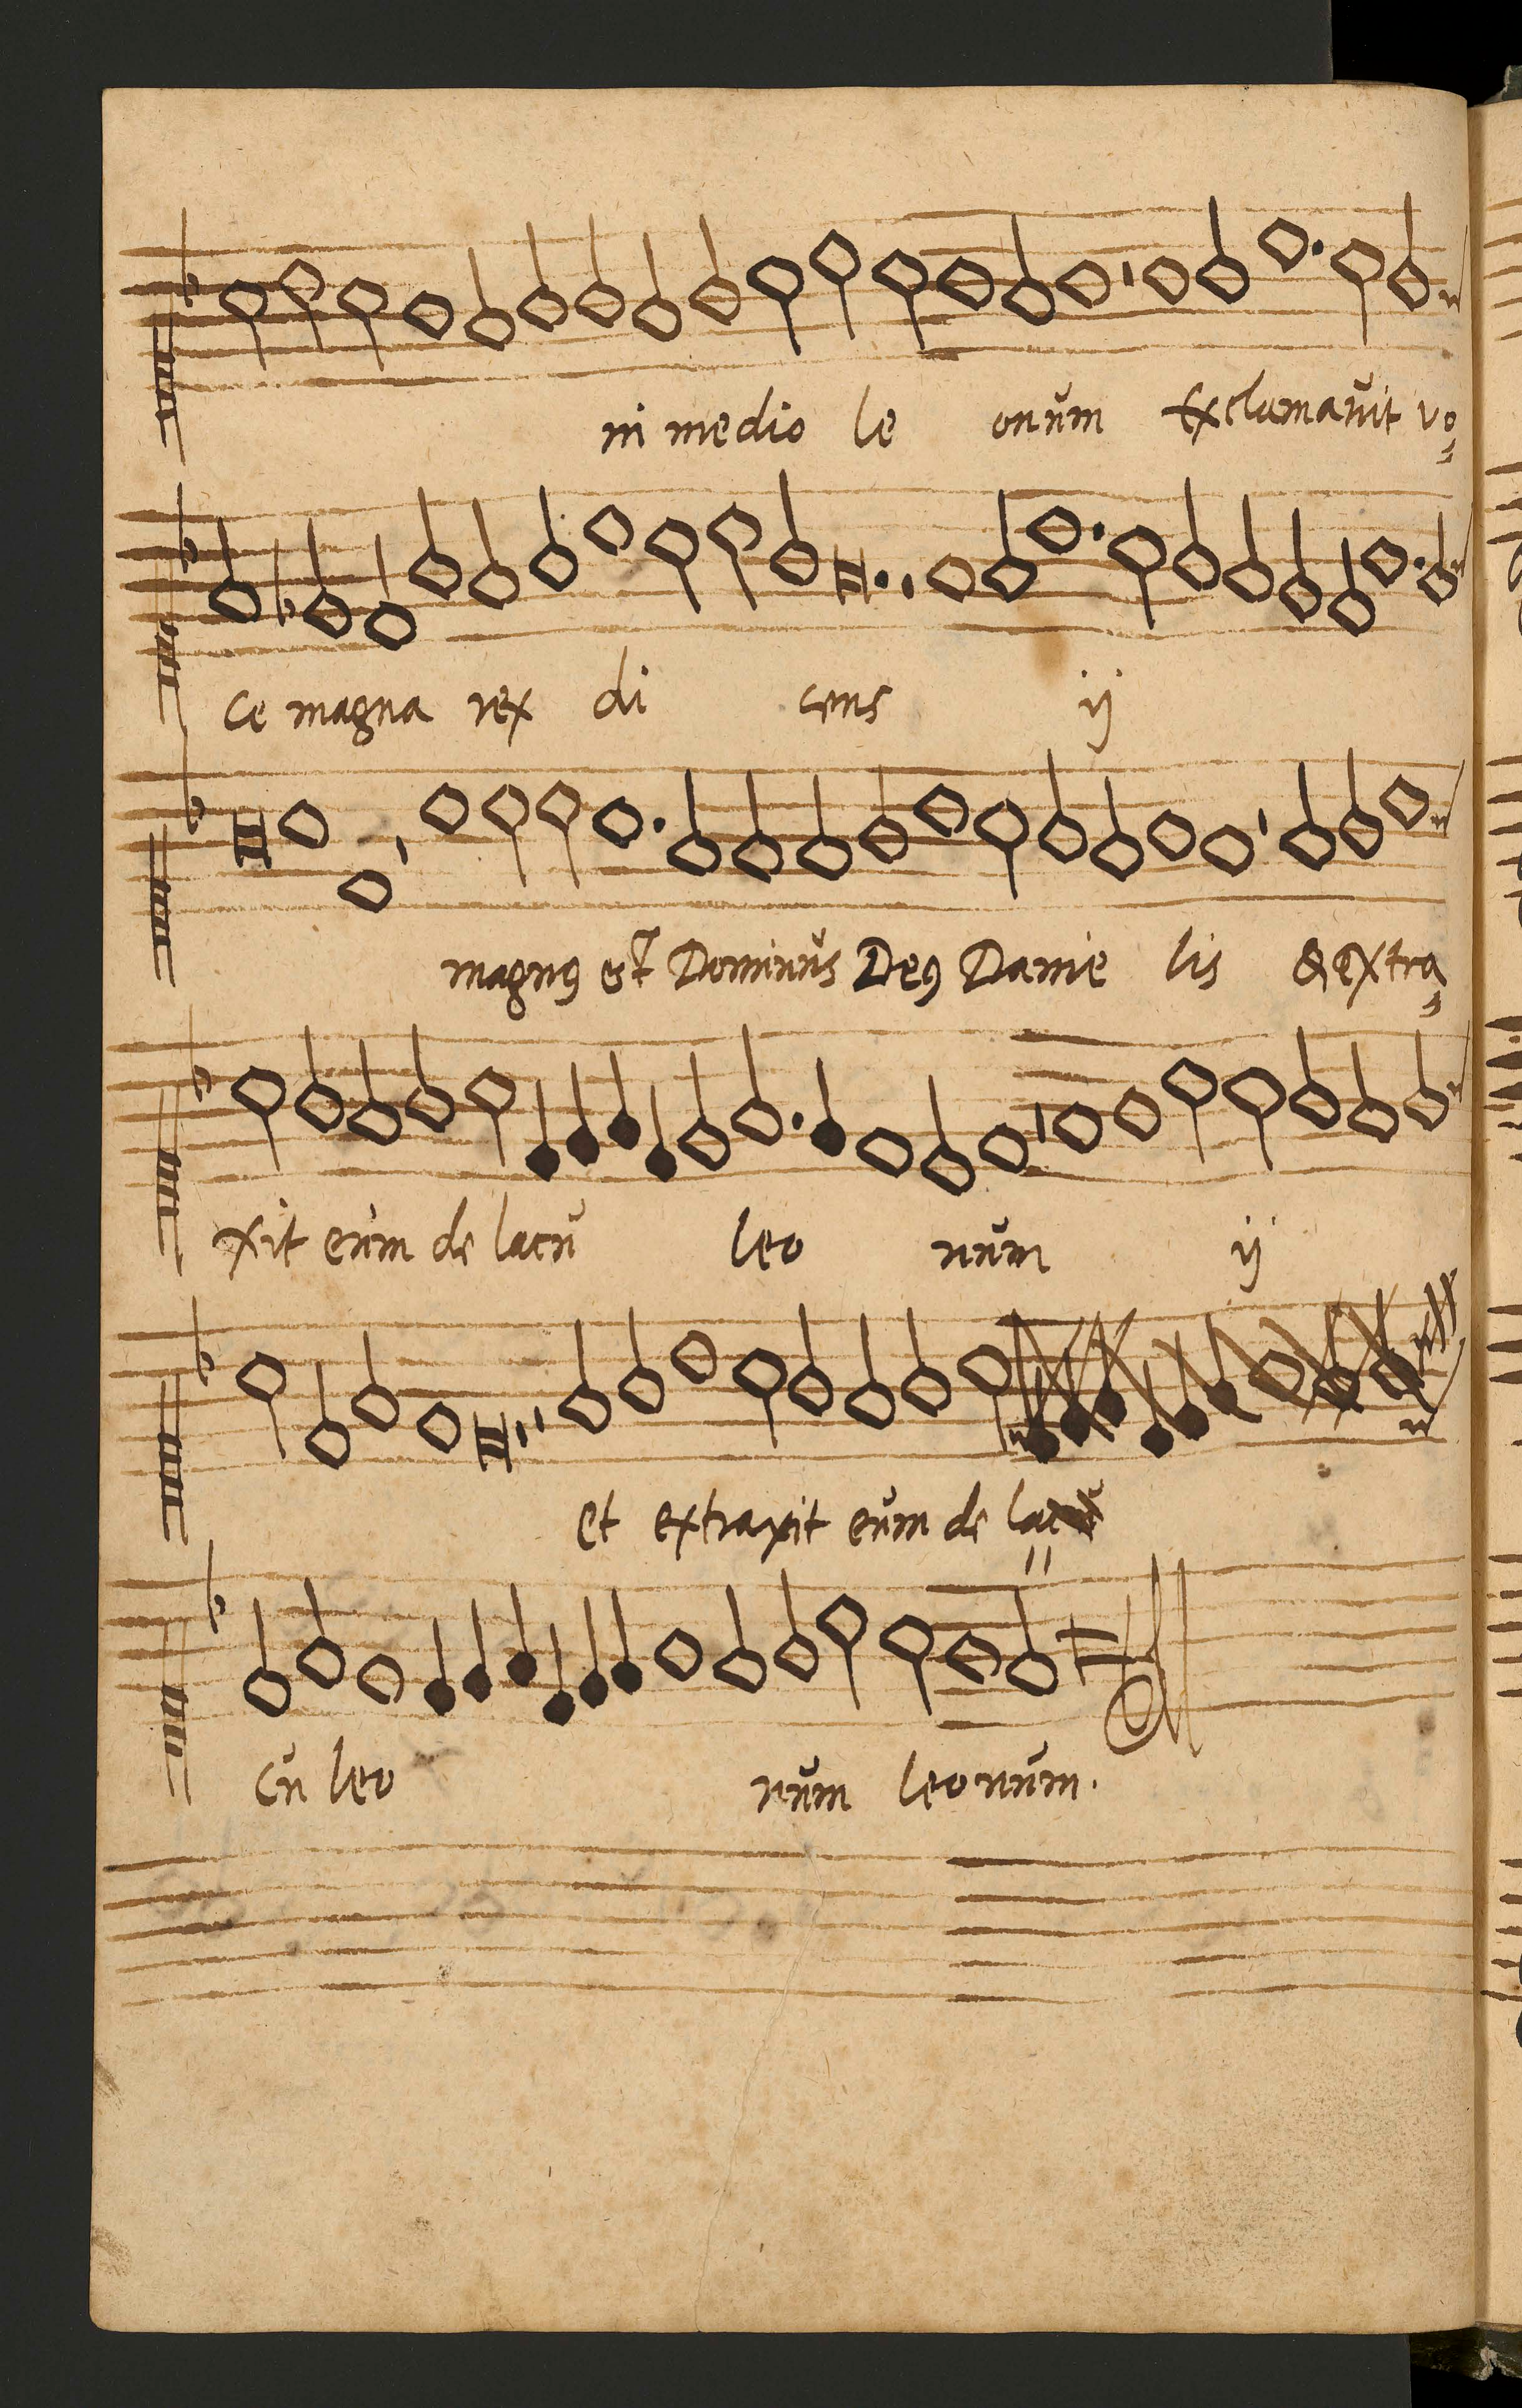 in medio le onum Exclamauit vo=
ce magna rex di cens ij
magnꝰ est Dominus Deꝰ Danie lis & extra=
xit eum de lacu leo num ij
et extraxit eum de la
cu leo num leonum.